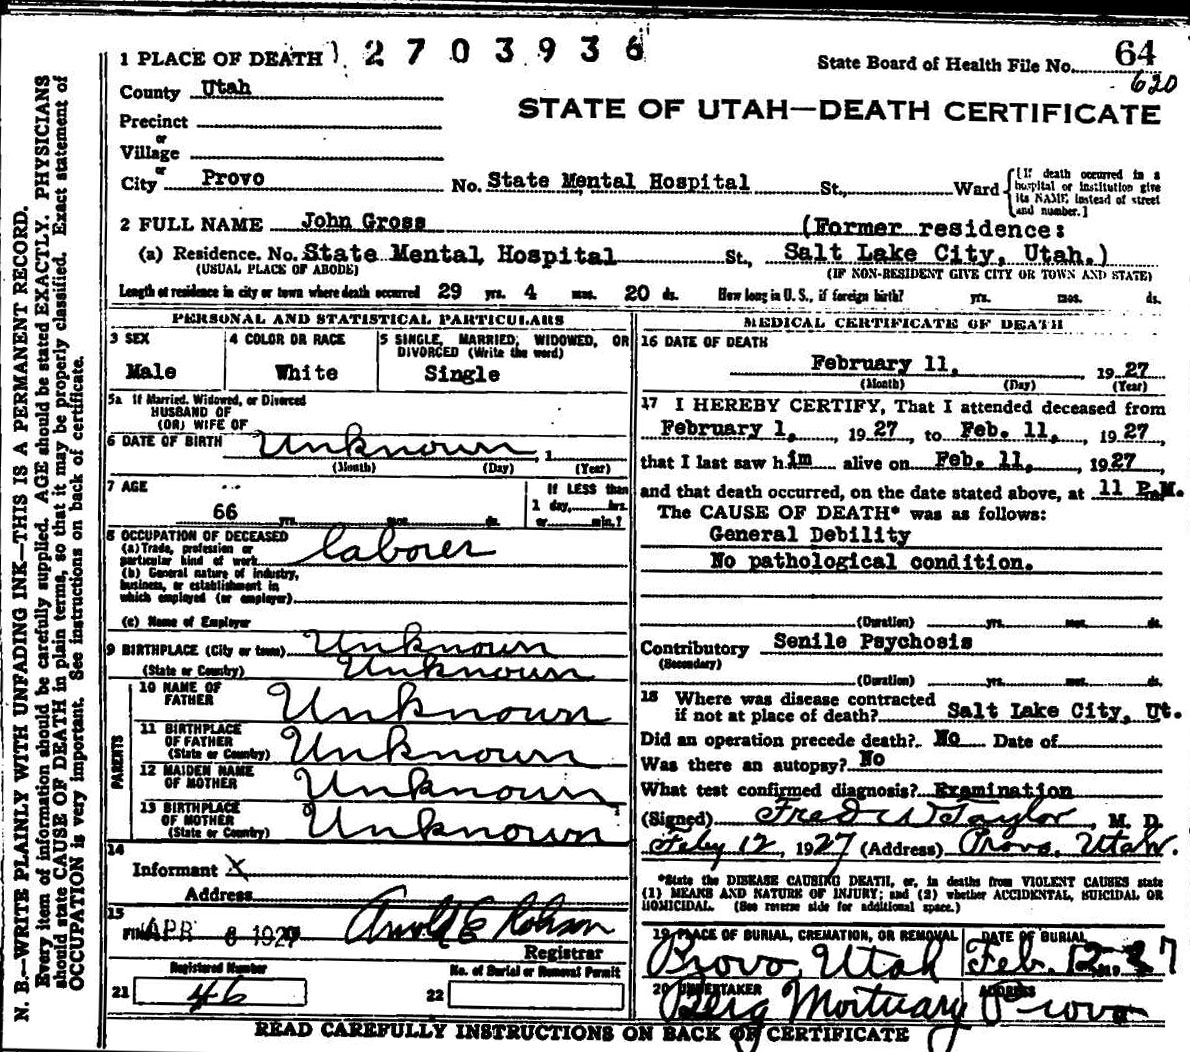 N. B.—WRITE PLAINLY WITH UNFADING INK—THIS IS A PERMANENT RECORD.
Every item of information should be carefully supplied. AGE should be stated EXACTLY. PHYSICIANS
should state CAUSE OF DEATH in plain terms, so that it may be properly classified. Exact statement of
OCCUPATION is very important. See instructions on back of certificate.
1 PLACE OF DEATH 2703936
State Board of Health File No. 64
620
County Utah
STATE OF UTAH—DEATH CERTIFICATE
Precinct
or
Village
or
City Provo No. State Mental Hospital St., Ward
[If death occurred in a
hospital or institution give
its NAME instead of street
and number.]
2 FULL NAME John Gross (Former residence:
(a) Residence. No. State Mental Hospital St., Salt Lake City, Utah.)
(USUAL PLACE OF ABODE) (IF NON-RESIDENT GIVE CITY OR TOWN AND STATE)
Length of residence in city or town where death occurred 29 yrs. 4 mos. 20 ds. How long in U. S., if foreign birth? yrs. mos. ds.
PERSONAL AND STATISTICAL PARTICULARS
3 SEX
Male
4 COLOR OR RACE
White
5 SINGLE, MARRIED, WIDOWED, OR
DIVORCED (Write the word)
Single
5a If Married, Widowed, or Divorced
HUSBAND OF
(OR) WIFE OF
6 DATE OF BIRTH Unknown, 1
(Month) (Day) (Year)
7 AGE
66 yrs. mos. ds.
If LESS than
1 day, hrs.
or min.?
8 OCCUPATION OF DECEASED
(a) Trade, profession or
particular kind of work laborer
(b) General nature of industry,
business, or establishment in
which employed (or employer)
(c) Name of Employer
9 BIRTHPLACE (City or town) Unknown
(State or Country) Unknown
PARENTS
10 NAME OF
FATHER Unknown
11 BIRTHPLACE
OF FATHER
(State or Country) Unknown
12 MAIDEN NAME
OF MOTHER Unknown
13 BIRTHPLACE
OF MOTHER
(State or Country) Unknown
14
Informant X
Address
15
APR 8 1927
Registrar
Registered Number
21 46
No. of Burial or Removal Permit
22
MEDICAL CERTIFICATE OF DEATH
16 DATE OF DEATH
February 11, 1927
(Month) (Day) (Year)
17 I HEREBY CERTIFY, That I attended deceased from
February 1, 1927, to Feb. 11, 1927,
that I last saw him alive on Feb. 11, 1927,
and that death occurred, on the date stated above, at 11 P.M.
The CAUSE OF DEATH* was as follows:
General Debility
No pathological condition.
(Duration) yrs. mos. ds.
Contributory Senile Psychosis
(Secondary)
(Duration) yrs. mos. ds.
18 Where was disease contracted
if not at place of death? Salt Lake City, Ut.
Did an operation precede death? No Date of
Was there an autopsy? No
What test confirmed diagnosis? Examination
(Signed) Fred W Taylor, M. D.
Feby 12, 1927 (Address) Provo, Utah.
*State the DISEASE CAUSING DEATH, or, in deaths from VIOLENT CAUSES state
(1) MEANS AND NATURE OF INJURY; and (2) whether ACCIDENTAL, SUICIDAL OR
HOMICIDAL. (See reverse side for additional space.)
19 PLACE OF BURIAL, CREMATION, OR REMOVAL
Provo, Utah
DATE OF BURIAL
Feb.
20 UNDERTAKER
Berg Mortuary
ADDRESS
Provo
READ CAREFULLY INSTRUCTIONS ON BACK OF CERTIFICATE